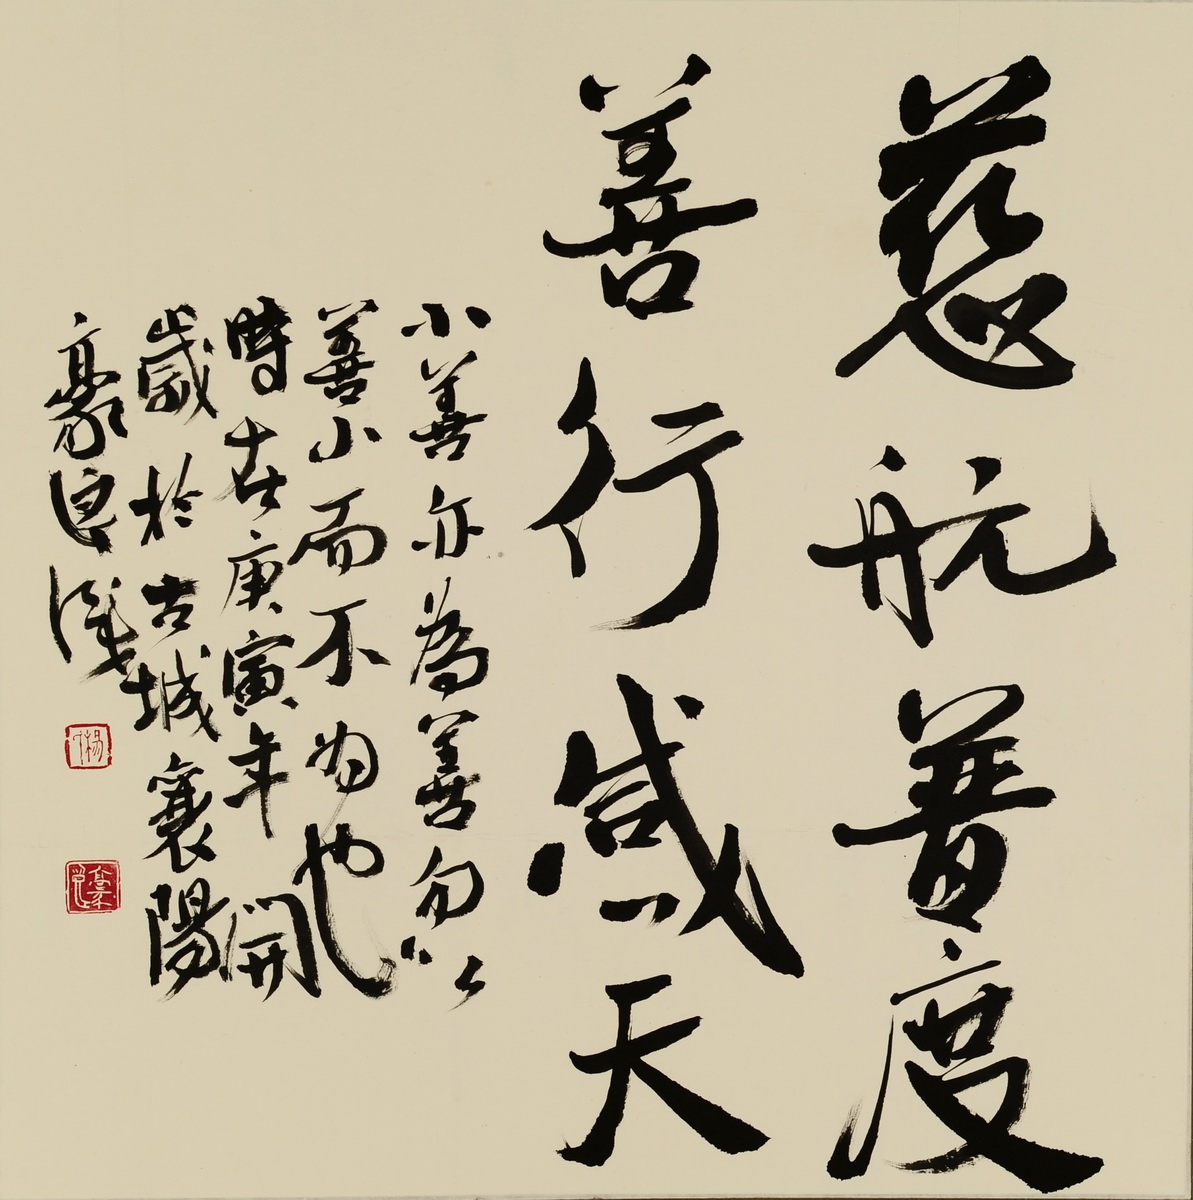 慈航普度
善行感天
小善亦為善勿以
善小而不为也
時在庚寅年開
歲於古城襄陽
豪